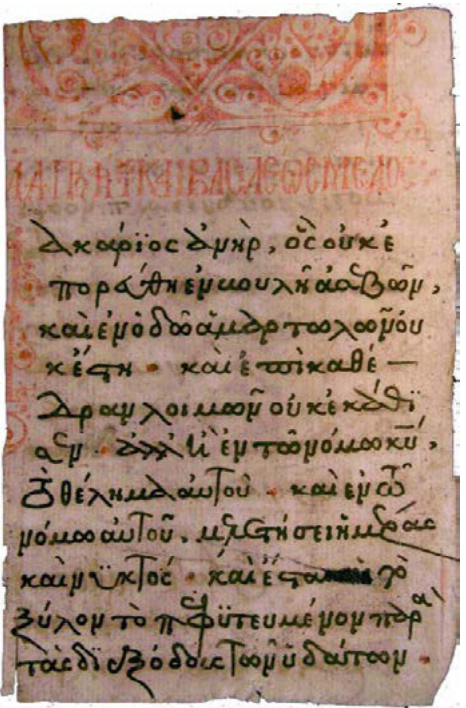 ΚΑΙ ΒΑCΙΛΕΩC ΜΕΛΟC
ακάρϊος ἀνὴρ, ὃς οὐκ ἐ
πορεύθη ἐν βουλῇ ἀσεβῶν,
καὶ ἐν ὁδῷ ἁμαρτωλῶν οὐ
κ ἔστη · καὶ ἐπὶ καθέ—
δραν λοιμῶν οὐκ ἐκάθϊ
σεν · ἀλλ' ἢ ἐν τῷ νόμῳ κ̅υ̅,
τὸ θέλημα αὐτοῦ · καὶ ἐν τῷ
νόμῳ αὐτοῦ, μελετήσει ἡμέρας
καὶ νϋκτός · καὶ ἔσται τὸ
ξύλον τὸ πεφϋτευμένον παρὰ
τὰς διεξόδους τῶν ὑδάτων ·